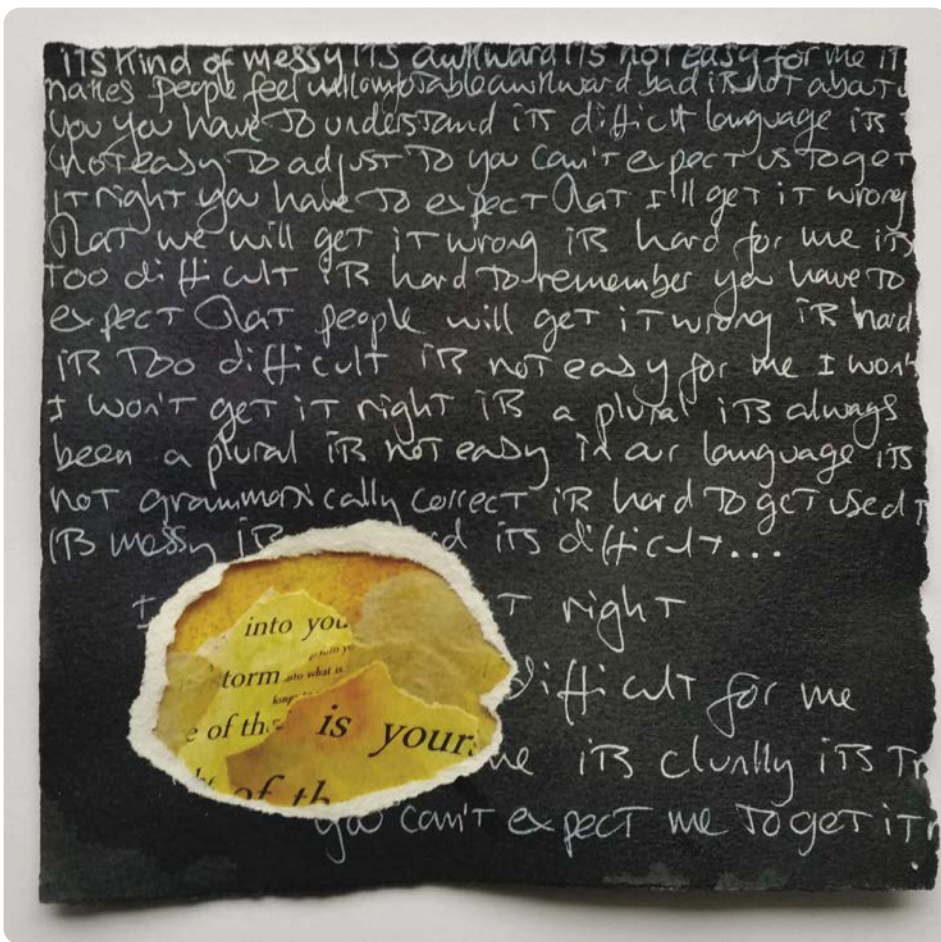 iTs Kind of messy iTs awkward iTs not easy for me iT
makes people feel uncomfortable awkward bad iTs not about
you you have To understand iTs difficult language iTs
not easy To adjust To you can't expect us To get
iT right you have To expect That I'll get iT wrong
That we will get iT wrong iTs hard for me iTs
Too difficult iTs hard To remember you have To
expect That people will get iT wrong iTs hard
iTs Too difficult iTs not easy for me I won't
I won't get iT right iTs a plural iTs always
been a plural iTs not easy in our language iTs
not grammatically correct iTs hard To get used
iTs messy iTs difficult...
I
T right
difficult for me
iTs clunky iTs
you can't expect me To get iT
into you
torm into what is
e of the
is your
of th